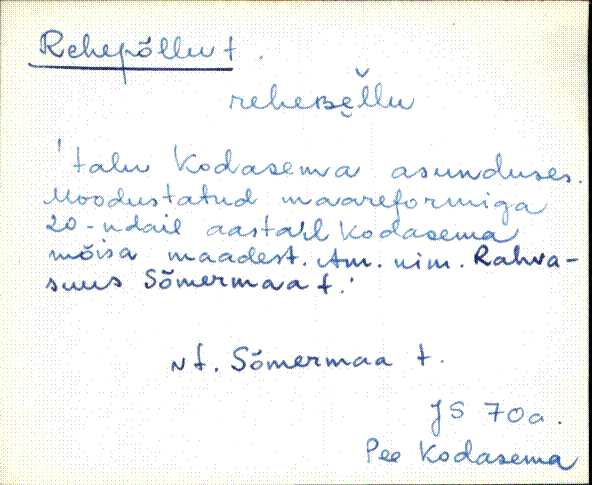 Rehepõllu t.
reheʙe̮llu
'talu Kodasema asunduses.
Moodustatud maareformiga
20-ndail aastail Kodasema
mõisa maadest. Am. nim. Rahva-
suus Sõmermaa t.'
vt. Sõmermaa t.
JS 70a.
Pee Kodasema